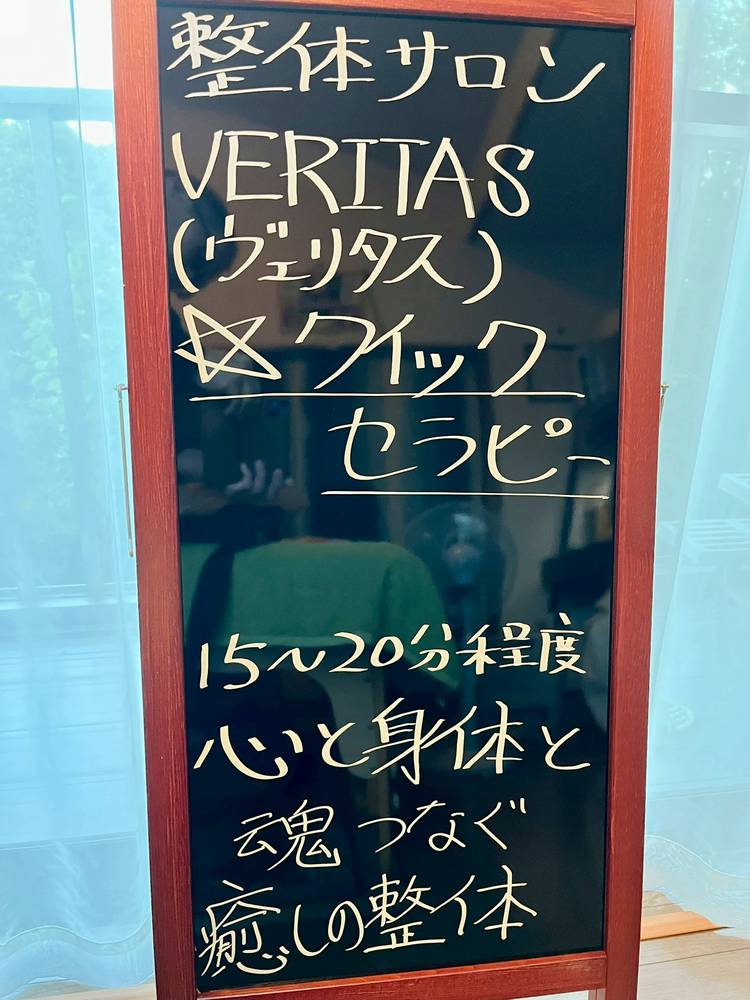 整体サロン
VERITAS
(ヴェリタス)
☆クイック
セラピー
15〜20分程度
心と身体と
魂つなぐ
癒しの整体